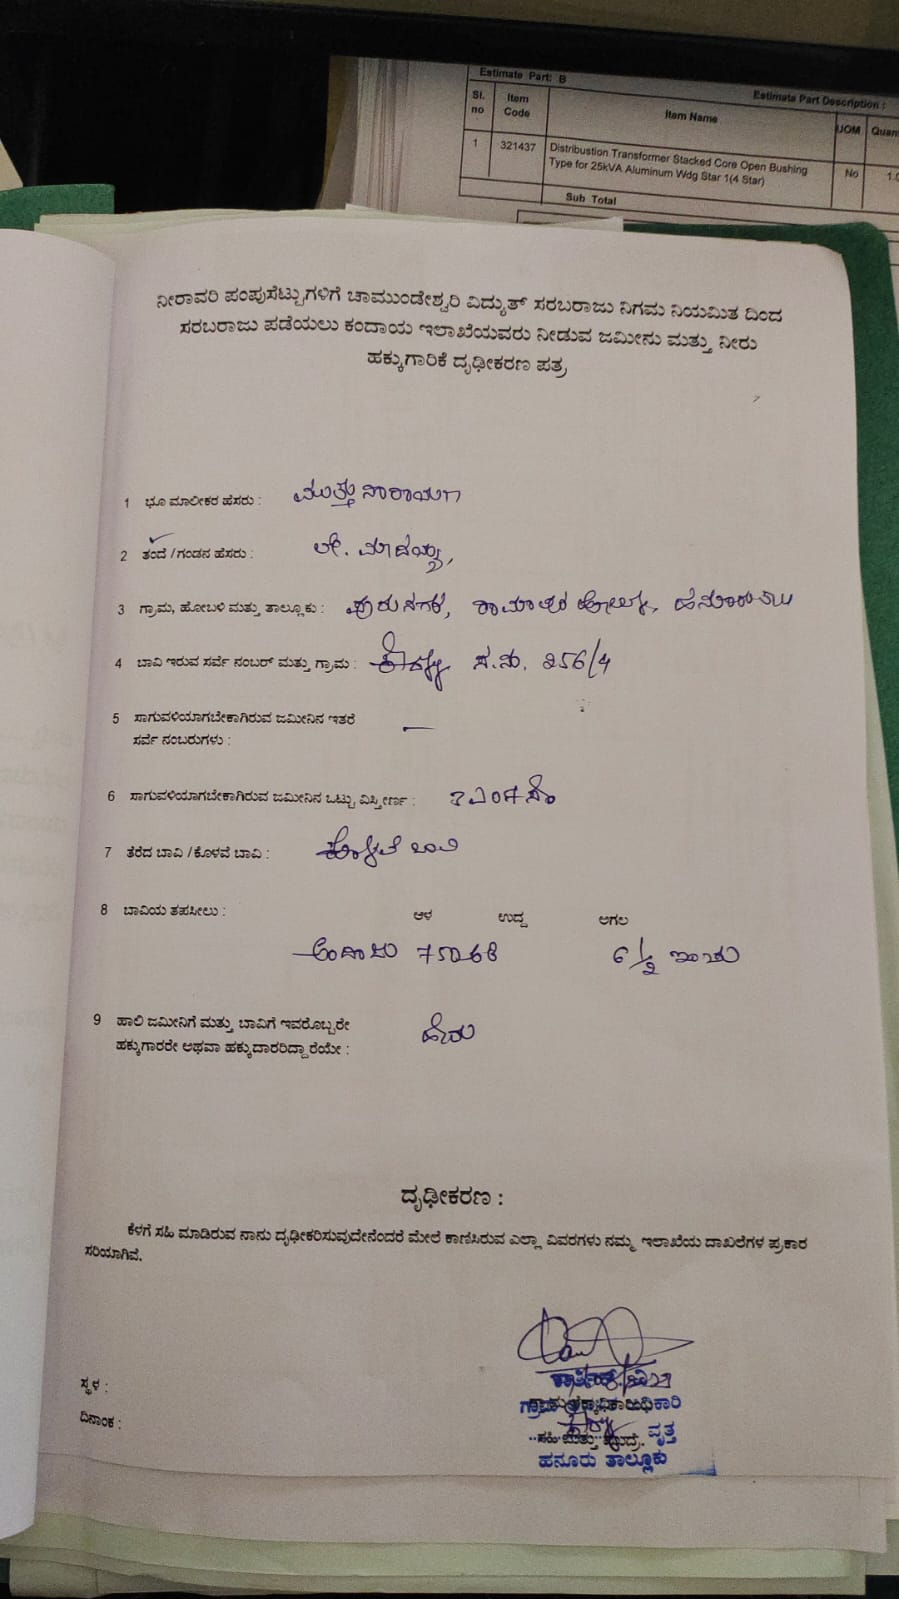 Estimate Part: B
Estimate Part Description :
Sl. no Item Code Item Name UOM Quan
1 321437 Distribustion Transformer Stacked Core Open Bushing
Type for 25kVA Aluminum Wdg Star 1(4 Star) No 1.0
Sub Total
ನೀರಾವರಿ ಪಂಪುಸೆಟ್ಟುಗಳಿಗೆ ಚಾಮುಂಡೇಶ್ವರಿ ವಿದ್ಯುತ್ ಸರಬರಾಜು ನಿಗಮ ನಿಯಮಿತ ದಿಂದ
ಸರಬರಾಜು ಪಡೆಯಲು ಕಂದಾಯ ಇಲಾಖೆಯವರು ನೀಡುವ ಜಮೀನು ಮತ್ತು ನೀರು
ಹಕ್ಕುಗಾರಿಕೆ ದೃಢೀಕರಣ ಪತ್ರ
1 ಭೂ ಮಾಲೀಕರ ಹೆಸರು : ಮುತ್ತುನಾರಾಯಣ
2 ತಂದೆ / ಗಂಡನ ಹೆಸರು : ಲೇ. ಮಾದಯ್ಯ
3 ಗ್ರಾಮ, ಹೋಬಳಿ ಮತ್ತು ತಾಲ್ಲೂಕು :
4 ಬಾವಿ ಇರುವ ಸರ್ವೆ ನಂಬರ್ ಮತ್ತು ಗ್ರಾಮ : ಸ.ನಂ. 256/4
5 ಸಾಗುವಳಿಯಾಗಬೇಕಾಗಿರುವ ಜಮೀನಿನ ಇತರೆ
ಸರ್ವೆ ನಂಬರುಗಳು : —
6 ಸಾಗುವಳಿಯಾಗಬೇಕಾಗಿರುವ ಜಮೀನಿನ ಒಟ್ಟು ವಿಸ್ತೀರ್ಣ :
7 ತೆರೆದ ಬಾವಿ / ಕೊಳವೆ ಬಾವಿ : ಕೊಳವೆ ಬಾವಿ
8 ಬಾವಿಯ ತಪಸೀಲು : ಆಳ ಉದ್ದ ಅಗಲ
ಅಂದಾಜು 750 ಅಡಿ 6 1/2 ಇಂಚು
9 ಹಾಲಿ ಜಮೀನಿಗೆ ಮತ್ತು ಬಾವಿಗೆ ಇವರೊಬ್ಬರೇ
ಹಕ್ಕುಗಾರರೇ ಅಥವಾ ಹಕ್ಕುದಾರರಿದ್ದಾರೆಯೇ : ಹೌದು
ದೃಢೀಕರಣ :
ಕೆಳಗೆ ಸಹಿ ಮಾಡಿರುವ ನಾನು ದೃಢೀಕರಿಸುವುದೇನೆಂದರೆ ಮೇಲೆ ಕಾಣಿಸಿರುವ ಎಲ್ಲಾ ವಿವರಗಳು ನಮ್ಮ ಇಲಾಖೆಯ ದಾಖಲೆಗಳ ಪ್ರಕಾರ
ಸರಿಯಾಗಿವೆ.
ಸ್ಥಳ :
ದಿನಾಂಕ :
ಸಹಿ ಮತ್ತು ಮುದ್ರೆ. ವೃತ್ತ
ಹನೂರು ತಾಲ್ಲೂಕು